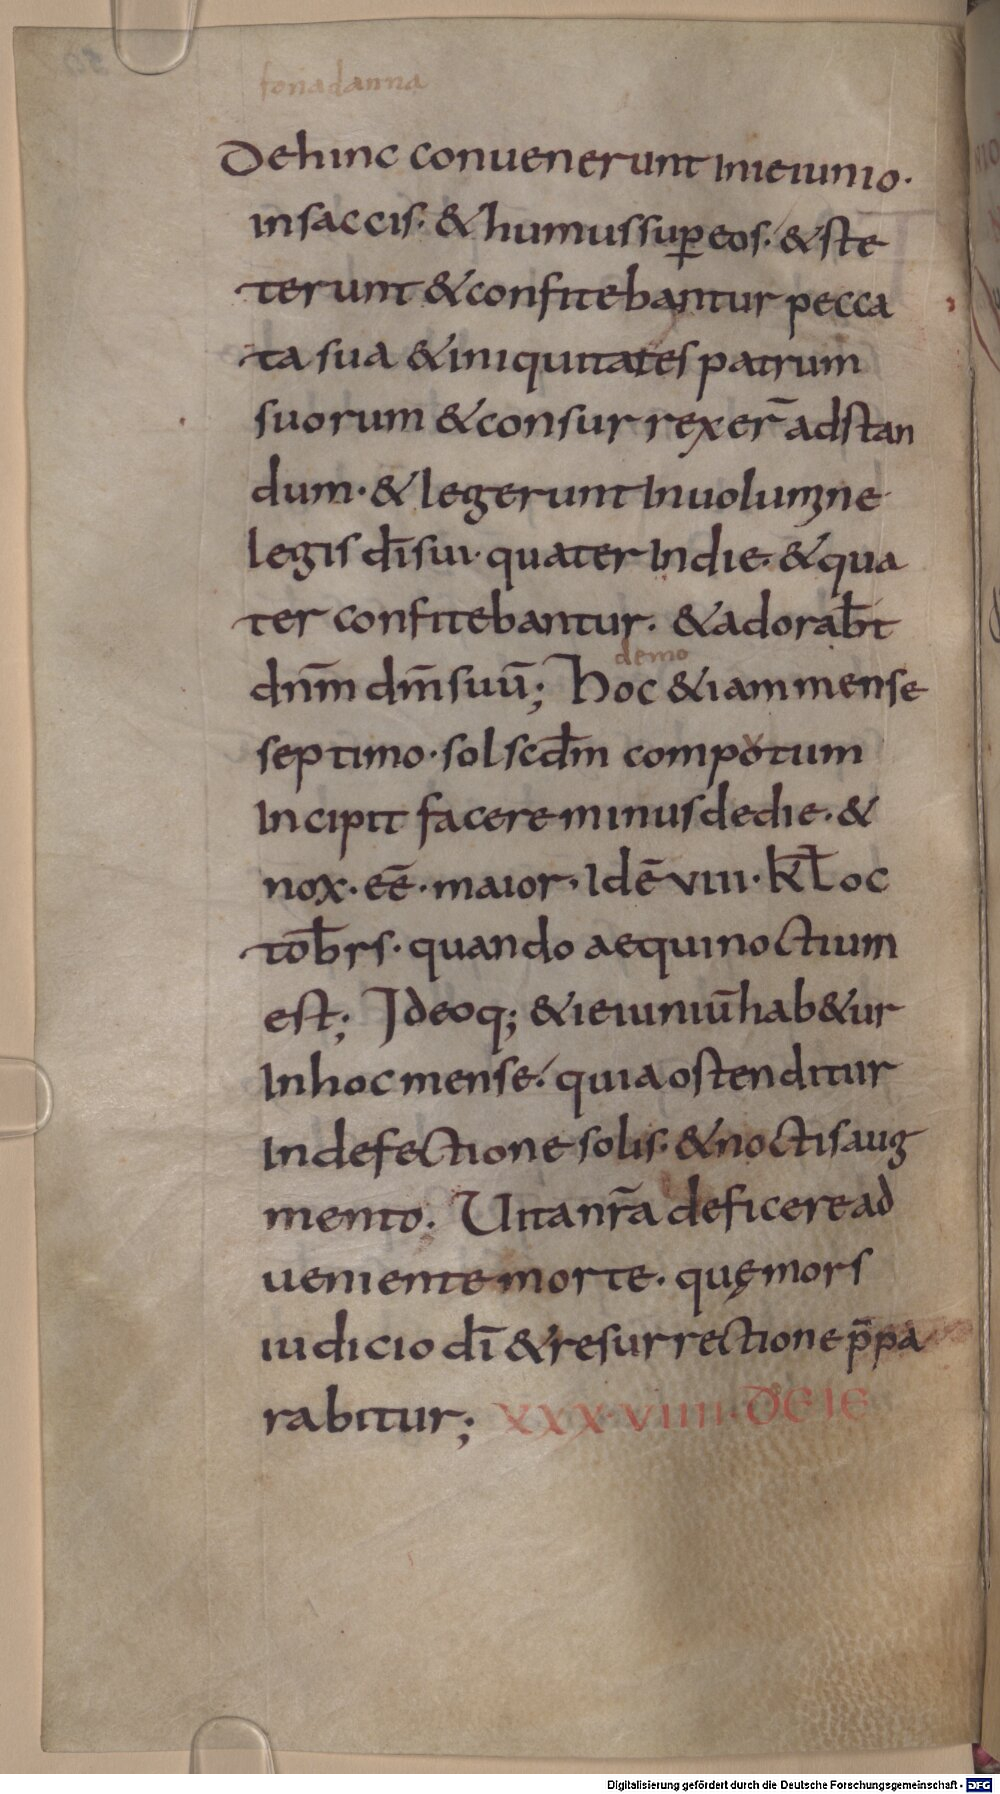 fonadanna
Dehinc conuenerunt in ieiunio·
in saccis· & humus sup̱ eos· & ste
terunt & confitebantur pecca
ta sua & iniquitates patrum
suorum & consurrexer̄ ad stan
dum· & legerunt in uolumine
legis dī sui· quater in die· & qua
ter confitebantur· & adorab̄t
demo
dnm̄ dm̄ suū; hoc & iam mense
septimo· sol scd̄m compotum
u
Incipit facere minus de die· &
nox· eē· maior· Idē VIII· kł oc
tob̄rs· quando aequinoctium
est; Ideoq; & ieiuniū hab&ur
In hoc mense· quia ostenditur
In defectione solis· & noctis aug
mento· Uita nr̄a deficere ad
ueniente morte· quę mors
iudicio dī & resurrectione p̄pa
rabitur; XXXVIIII· DE IE
Digitalisierung gefördert durch die Deutsche Forschungsgemeinschaft - DFG